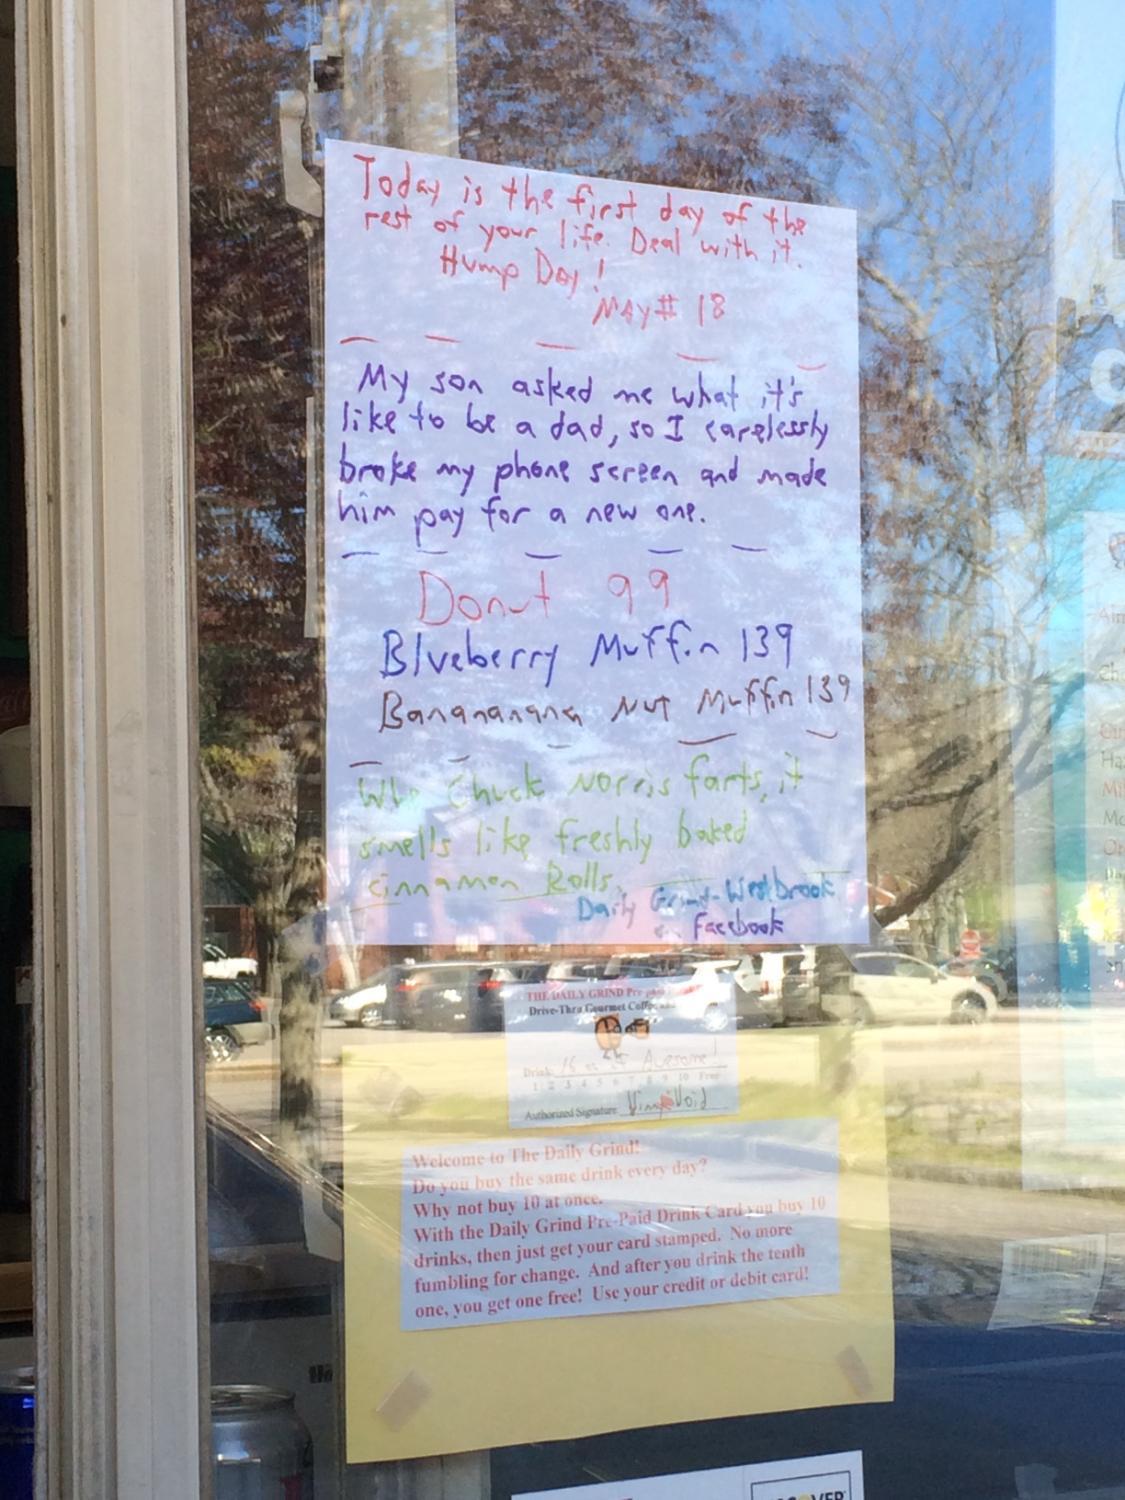 Today is the first day of the
rest of your life. Deal with it.
Hump Day!
MAY # 18
My son asked me what it's
like to be a dad, so I carelessly
broke my phone screen and made
him pay for a new one.
Donut 99
Blueberry Muffin 139
Banananana Nut Muffin 139
Chuck Norris farts, it
smells like freshly baked
cinnamon Rolls.
Daily Grind-Westbrook
on Facebook
THE DAILY GRIND Pre-paid
Drive-Thru Gourmet
Drink: 16 oz of Awesome!
1 2 3 4 5 6 7 8 9 10 Free
Authorized Signature
Welcome to The Daily Grind!
Do you buy the same drink every day?
Why not buy 10 at once.
With the Daily Grind Pre-Paid Drink Card you buy 10
drinks, then just get your card stamped. No more
fumbling for change. And after you drink the tenth
one, you get one free! Use your credit or debit card!